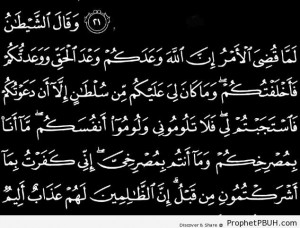 ٢١ وَقَالَ الشَّيْطَٰنُ
لَمَّا قُضِىَ الْأَمْرُ إِنَّ اللَّهَ وَعَدَكُمْ وَعْدَ الْحَقِّ وَوَعَدتُّكُمْ
فَأَخْلَفْتُكُمْ ۖ وَمَا كَانَ لِىَ عَلَيْكُم مِّن سُلْطَٰنٍ إِلَّا أَن دَعَوْتُكُمْ
فَاسْتَجَبْتُمْ لِى ۖ فَلَا تَلُومُونِى وَلُومُوا أَنفُسَكُم ۖ مَّا أَنَا
بِمُصْرِخِكُمْ وَمَا أَنتُم بِمُصْرِخِىَّ ۖ إِنِّى كَفَرْتُ بِمَا
أَشْرَكْتُمُونِ مِن قَبْلُ ۗ إِنَّ الظَّٰلِمِينَ لَهُمْ عَذَابٌ أَلِيمٌ
Discover & Share @ ProphetPBUH.com